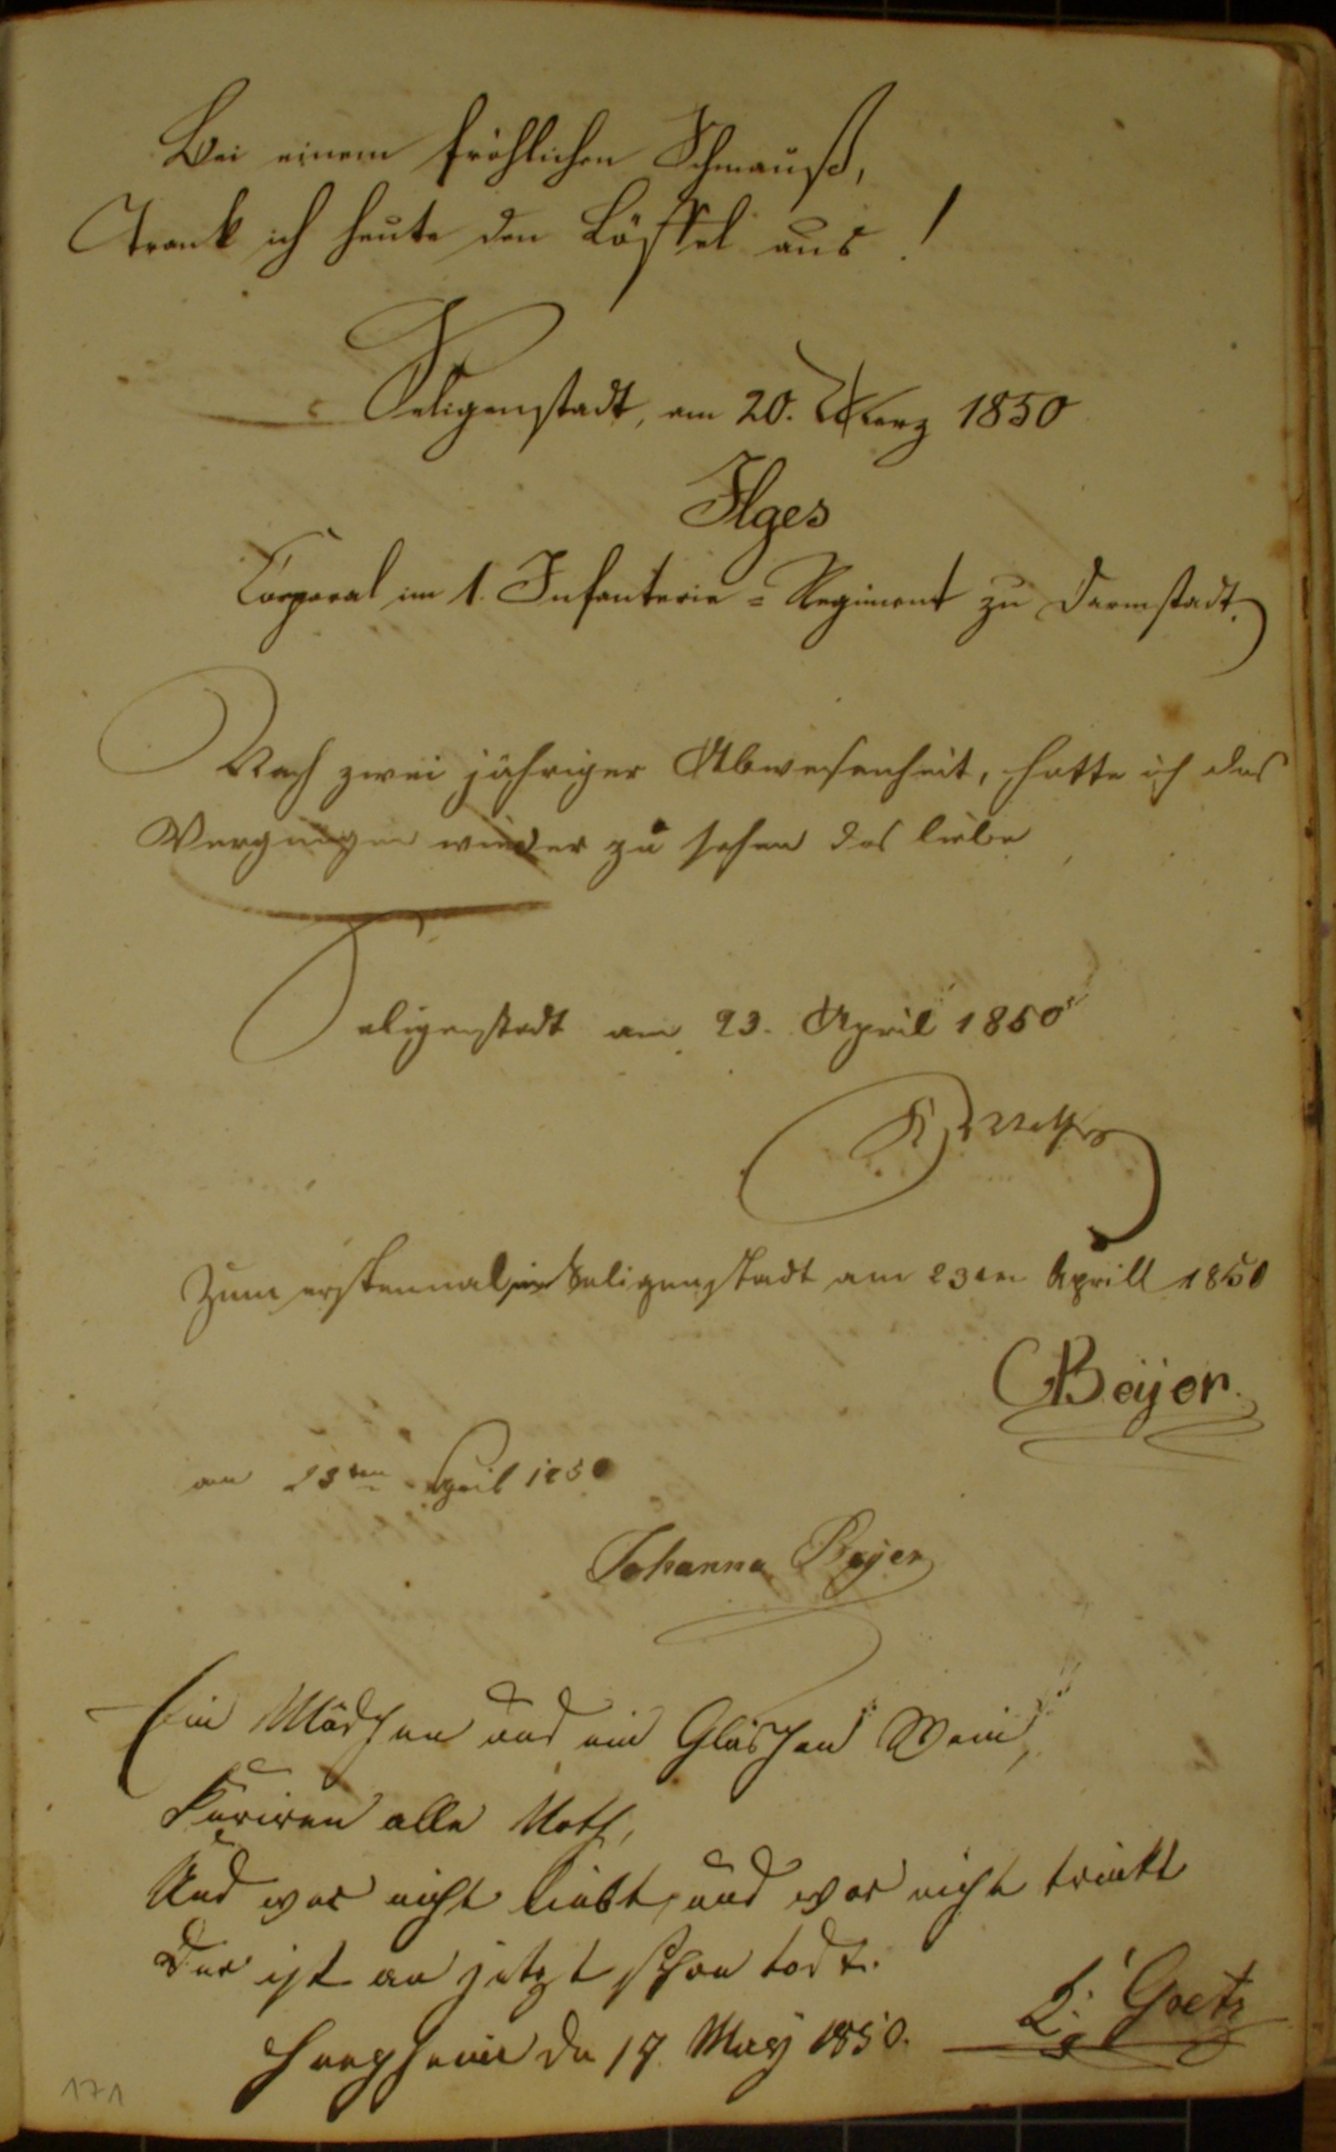 Bei einem fröhlichen Schmauß,
Trank ich heute den Löffel aus!
Seligenstadt, am 20. Maerz 1850
Ilges
Corporal im 1. Infanterie-Regiment zu Darmstadt.
Nach zwei jähriger Abwesenheit, hatte ich das
Vergnügen wieder zu sehen das liebe
Seligenstadt am 23. April 1850
Zum erstenmal in Seligenstadt am 23ten Aprill 1850
CBeyer.
am 23ten April 1850
Johanna Beyer
Ein Mädchen und ein Gläschen Wein,
Kuriren alle Noth,
Und wer nicht liebt, und wer nicht trinkt
Der ist an jetzt schon todt.
den 17. May 1850.
Goetz
171